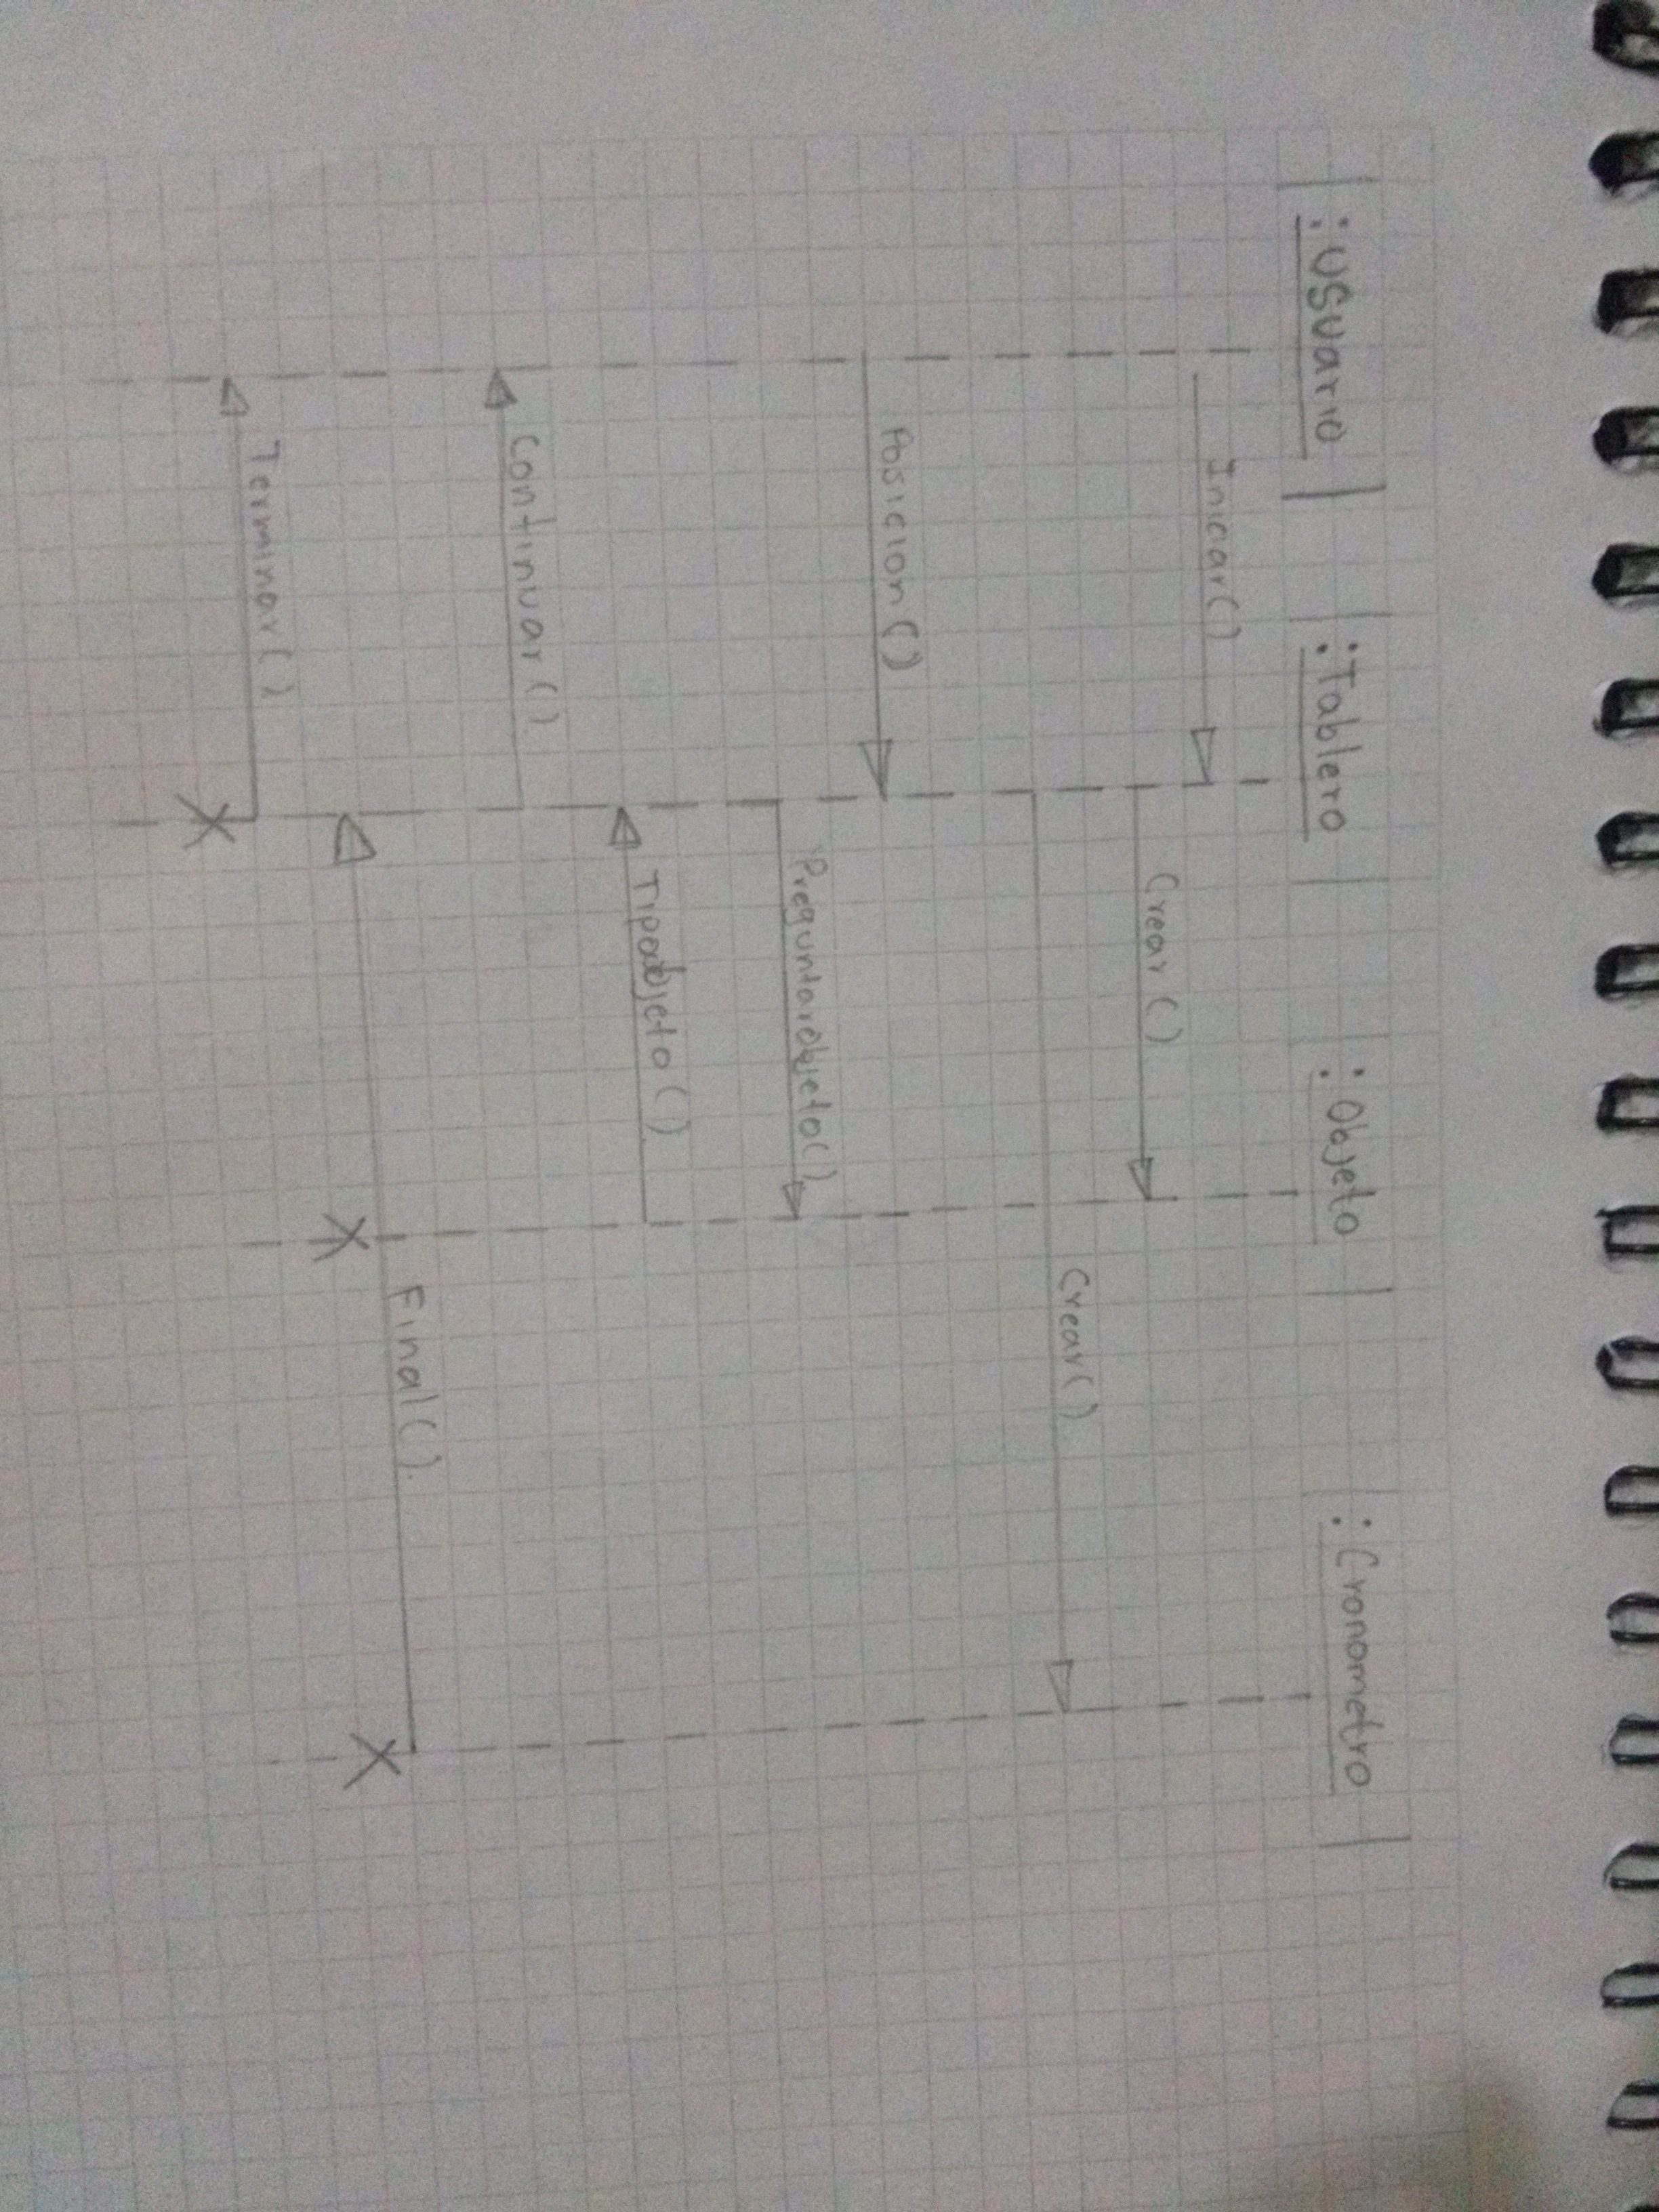 :Usuario
:Tablero
:Objeto
:Cronometro
Iniciar()
Crear()
Crear()
Posicion()
PreguntarObjeto()
Tipoobjeto()
Continuar()
Final().
Terminar()